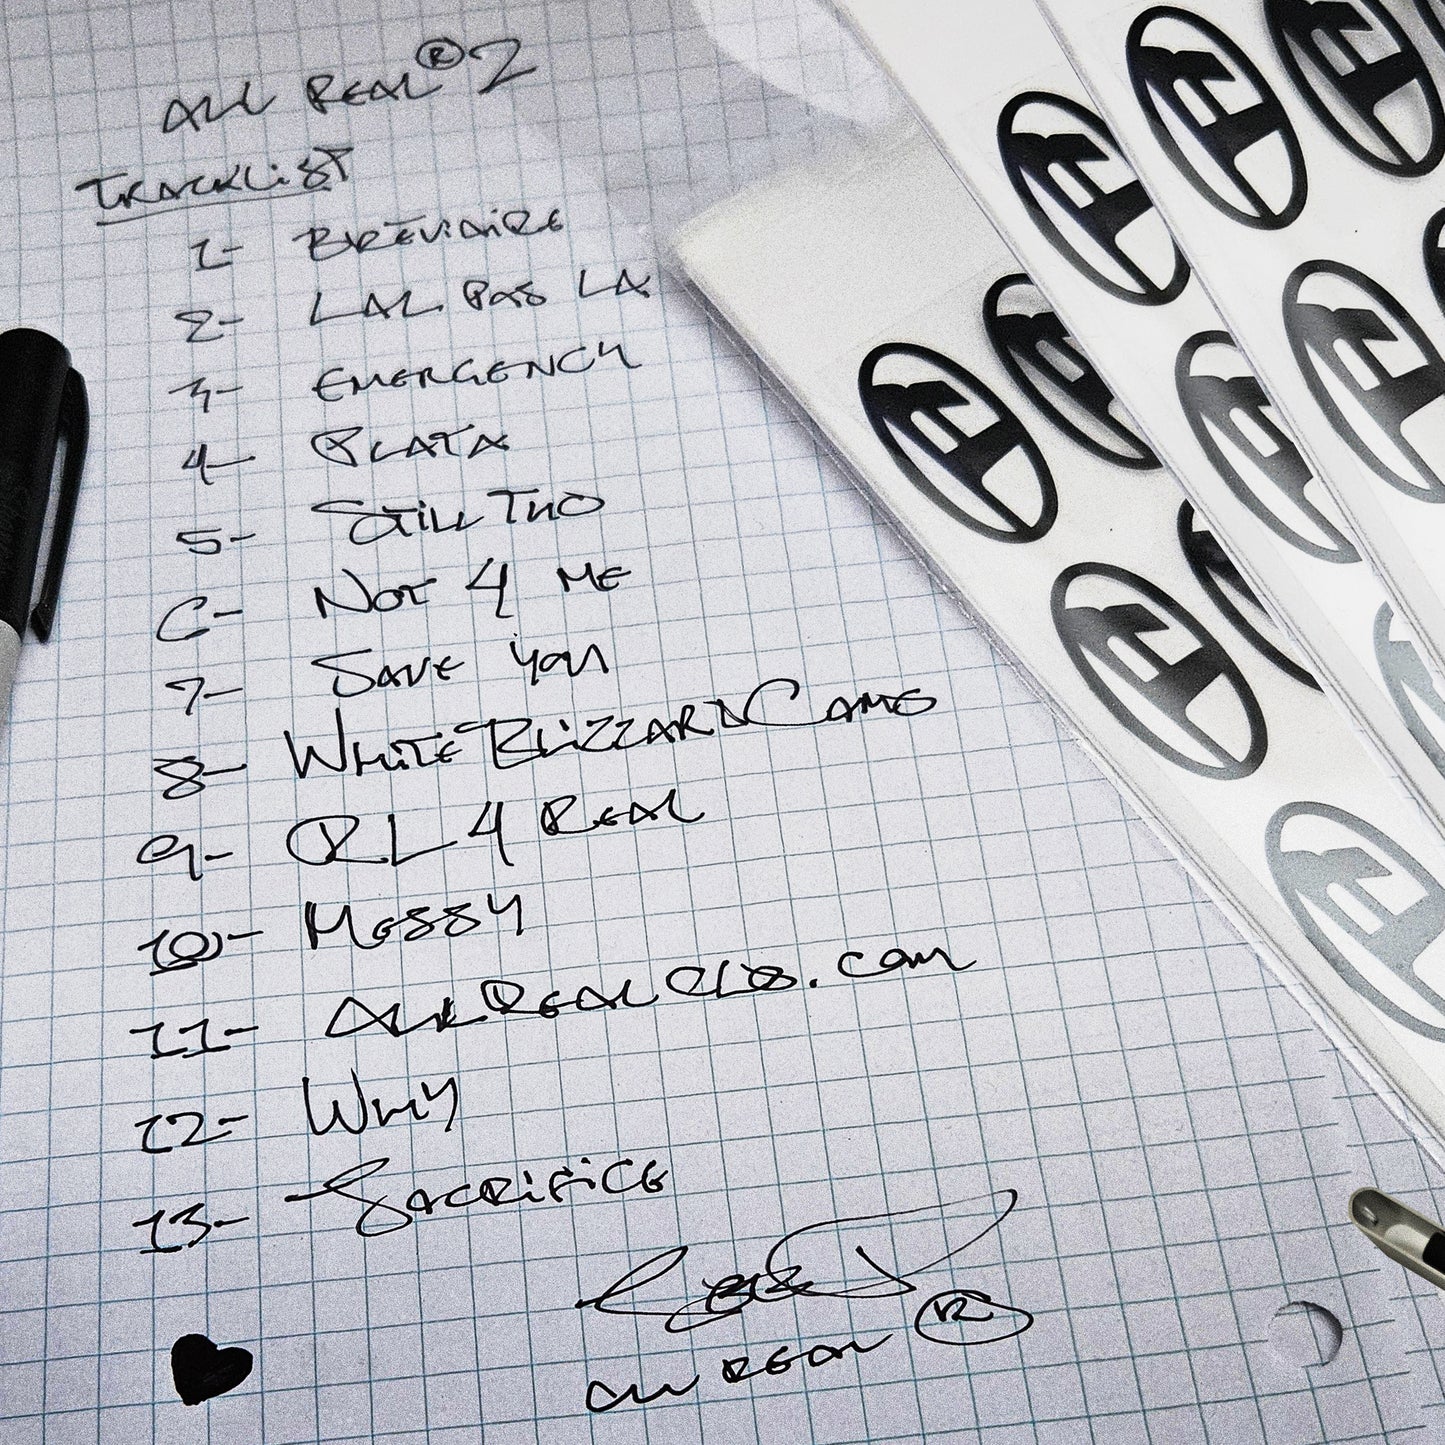 ALL REAL ® 2
TRACKLIST
1- BREVIAIRE
2- LAL PAS LA
3- EMERGENCY
4- PLATA
5- STILL TWO
6- NOT 4 ME
7- SAVE YOU
8- WHITE BLIZZARD CAMO
9- RL 4 REAL
10- MESSY
11- ALLREALCLUB.COM
12- WHY
13- SACRIFICE
ALL REAL ®